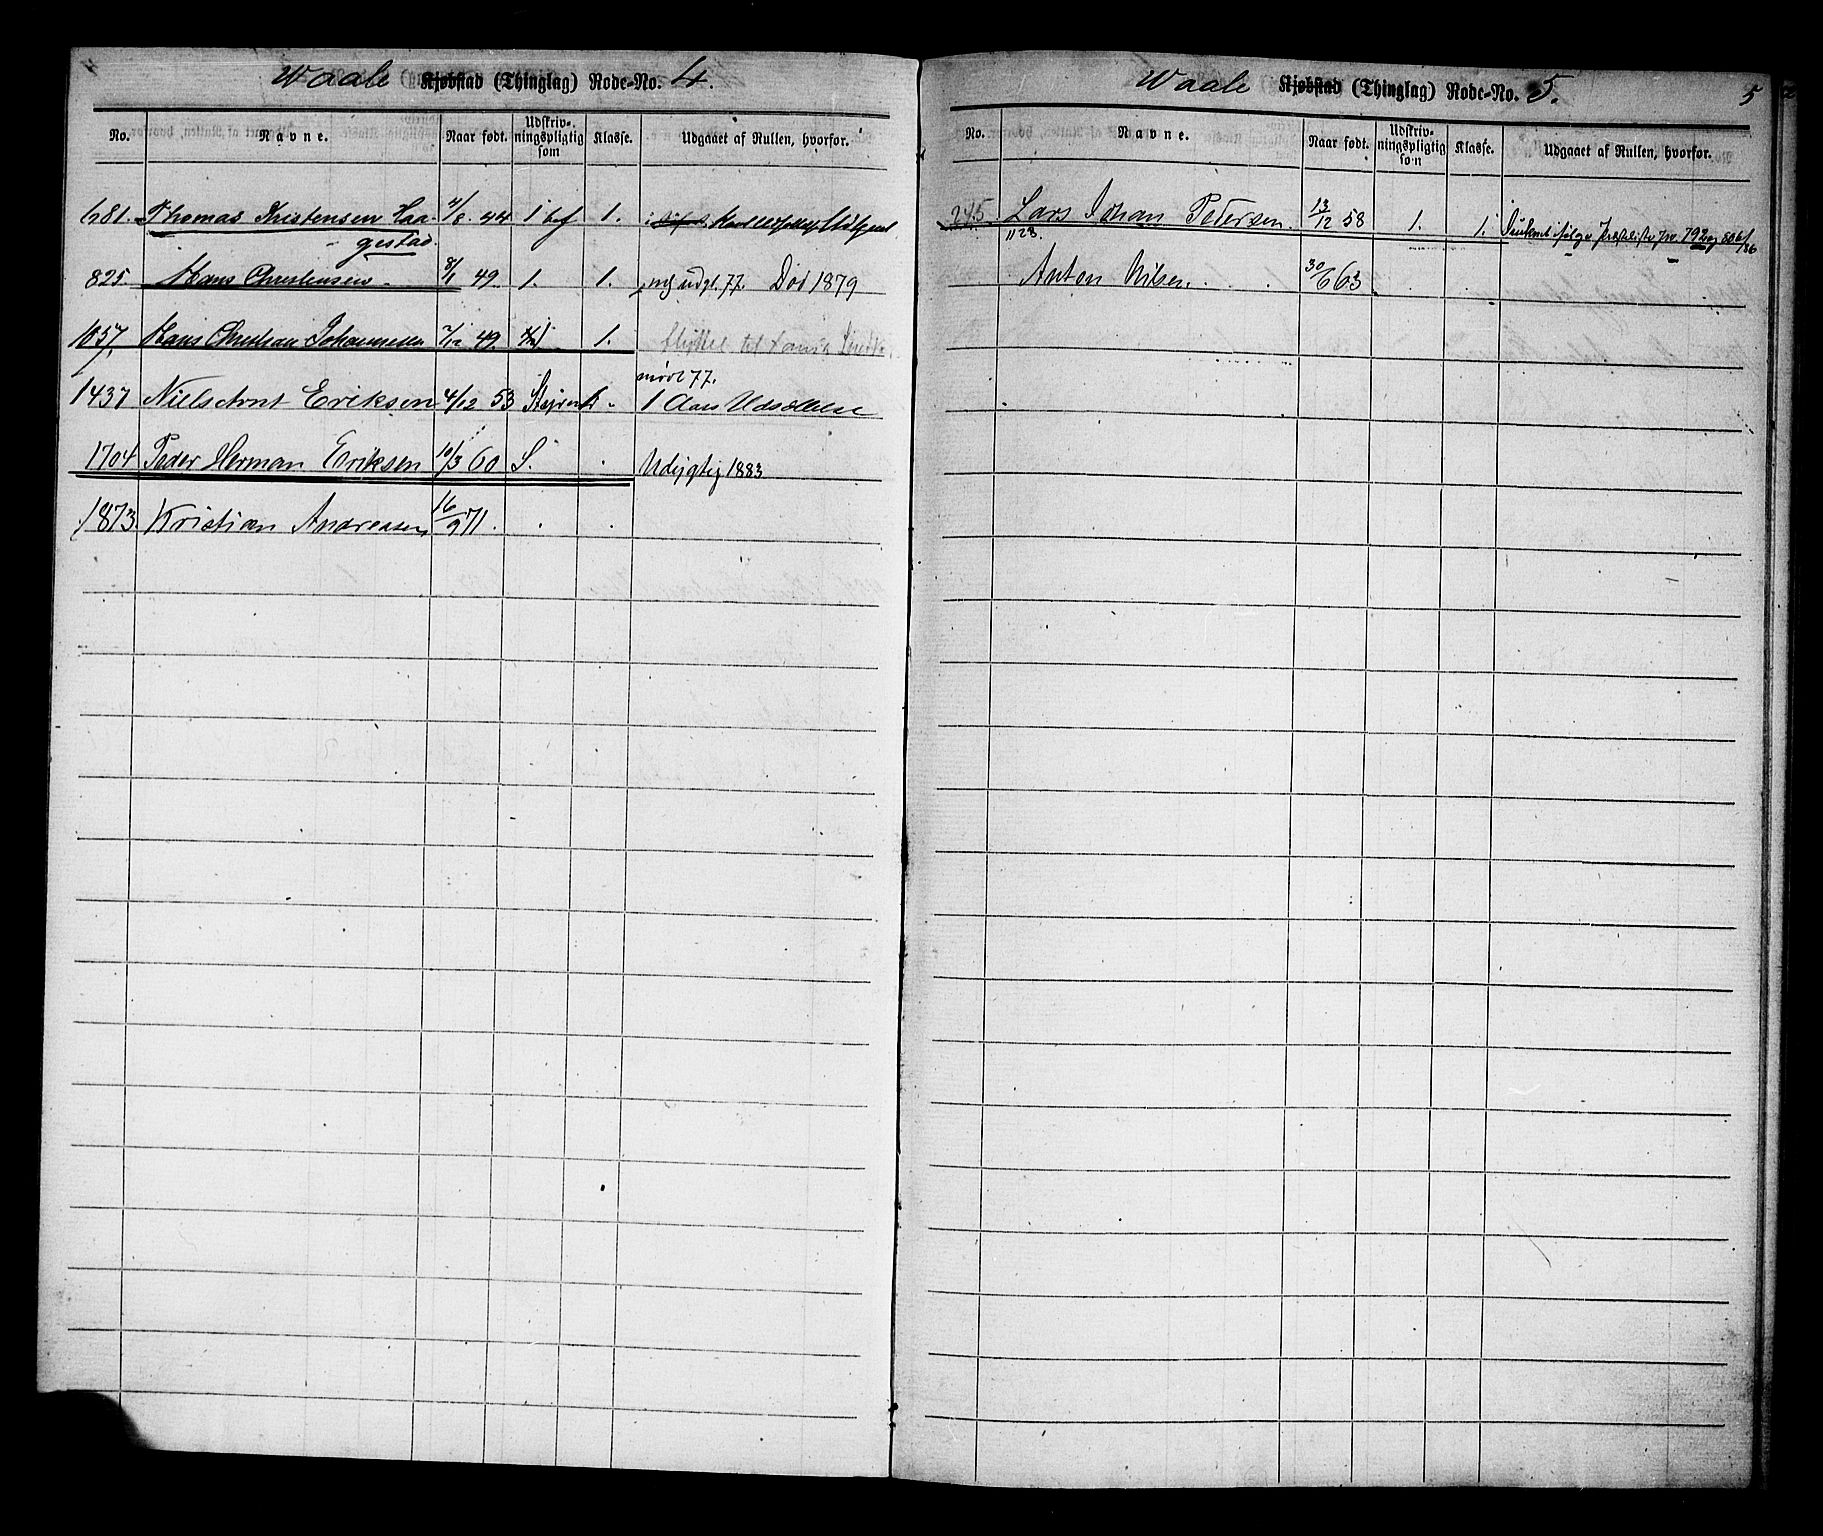 Waale Kjøbstad (Thinglag) Rode-No. 4.
No. Navne. Naar født. Udskrivningspligtig som Klasse. Udgaaet af Rullen, hvorfor.
681. Thomas Kristensen Haa- 11/8 44 1 1.
gestad.
825. Hans Christensen 8/1 49. 1. 1. udgt. 77. Død 1879
1057. Hans Christian Johannesen 7/12 49. 1. flyttet til
mødt 77.
1437 Niels Arnt Eriksen 4/12 53 1 Aars Udsættelse
1704 Peder Herman Eriksen 10/3 60 S. Udygtig 1883
1873 Kristian Andreasen 16/9 71.
Waale Kjøbstad (Thinglag) Rode-No. 5.
5
No. Navne. Naar født. Udskrivningspligtig som Klasse. Udgaaet af Rullen, hvorfor.
245 Lars Johan Petersen. 13/12 58 1. 1. Druknet ifølge Presteliste 792 og 806/86
1128.
Anton Nilsen. 30/6 63